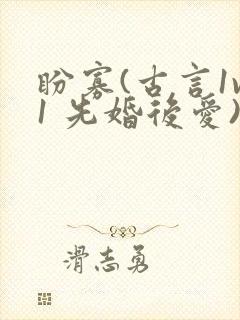 盼寡(古言1v
1 先婚後愛)
滑志勇